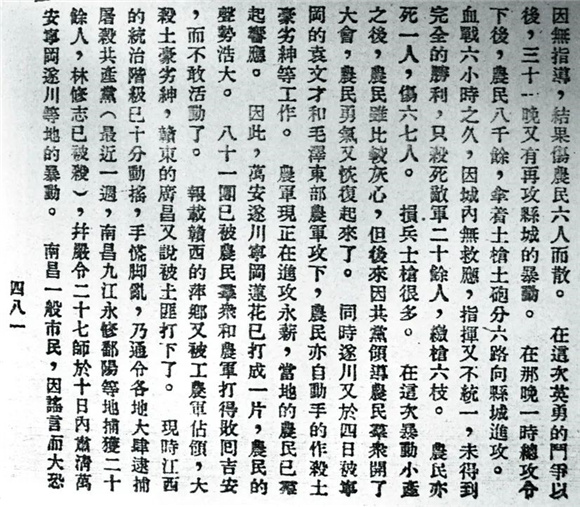 因無指導，結果傷農民六人而散。　在這次英勇的鬥爭以
後，三十一晚又有再攻縣城的暴動。　在那晚一時總攻令
下後，農民八千餘，拿着土槍土砲分六路向縣城進攻。
血戰六小時之久，因城內無救應，指揮又不統一，未得到
完全的勝利，只殺死敵軍二十餘人，繳槍六枝。　農民亦
死一人，傷六七人。　損兵士槍很多。　在這次暴動小產
之後，農民雖比較灰心，但後來因共黨領導農民羣衆開了
大會，農民勇氣又恢復起來了。　同時遂川又於四日被寧
岡的袁文才和毛澤東部農軍攻下，農民亦自動手的作殺土
豪劣紳等工作。　農軍現正在進攻永新，當地的農民已羣
起響應。　因此，萬安遂川寧岡蓮花已打成一片，農民的
聲勢浩大。　八十一團已被農民羣衆和農軍打得敗回吉安
，而不敢活動了。　報載贛西的萍鄉又被工農軍佔領，大
殺土豪劣紳，贛東的廣昌又說被土匪打下了。　現時江西
的統治階級已十分動搖，手慌脚亂，乃通令各地大肆逮捕
屠殺共產黨（最近一週，南昌九江永修鄱陽等地捕獲二十
餘人，林修志已被殺），幷嚴令二十七師於十日內肅清萬
安寧岡遂川等地的暴動。　南昌一般市民，因謠言而大恐
四八一